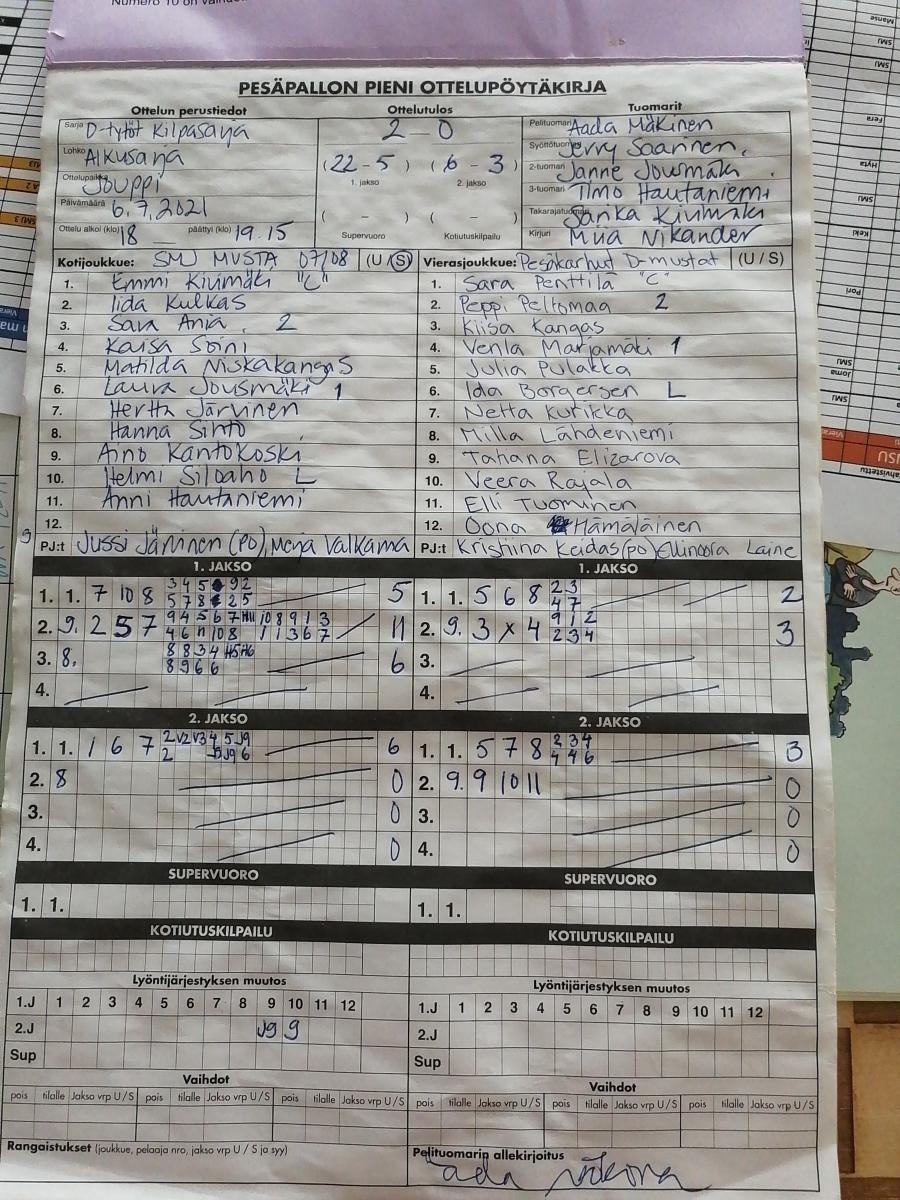 PESÄPALLON PIENI OTTELUPÖYTÄKIRJA
Ottelun perustiedot
Sarja D-tytöt Kilpasarja
Lohko Alkusarja
Ottelupaikka Jouppi
Päivämäärä 6.7.2021
Ottelu alkoi (klo) 18 päättyi (klo) 19.15
Ottelutulos
2 - 0
(22 - 5) (6 - 3)
1. jakso 2. jakso
( - ) ( - )
Supervuoro Kotiutuskilpailu
Tuomarit
Pelituomari Aada Mäkinen
Syöttötuomari Jerry Saarinen
2-tuomari Janne Jousmäki
3-tuomari Timo Hautaniemi
Takarajatuomari Sanka Kivimäki
Kirjuri Miia Nikander
Kotijoukkue: SMJ MUSTA 07/08 (U/S)
1. Emmi Kivimäki "C"
2. Iida Kulkas
3. Sara Ania 2
4. Kaisa Soini
5. Matilda Niskakangas
6. Laura Jousmäki 1
7. Hertta Järvinen
8. Hanna Sihto
9. Aino Kantokoski
10. Helmi Siloaho L
11. Anni Hautaniemi
12.
PJ:t Jussi Järvinen (PO) Merja Valkama
Vierasjoukkue: Pesäkarhut D-mustat (U/S)
1. Sara Penttilä "C"
2. Peppi Peltomaa 2
3. Kiisa Kangas
4. Venla Marjamäki 1
5. Julia Pulakka
6. Ida Borgersen L
7. Netta Kutikka
8. Milla Lähdeniemi
9. Tatiana Elizarova
10. Veera Rajala
11. Elli Tuominen
12. Oona Hämäläinen
PJ:t Kristiina Keidas (po) Ellinoora Laine
1. JAKSO
1. 1. 7 10 8 5
2. 9. 2 5 7 11
3. 8. 6
4.
1. JAKSO
1. 1. 5 6 8 2 3 4 7 2
2. 9. 3 x 4 9 1 2 2 3 4 3
3.
4.
2. JAKSO
1. 1. 1 6 7 6
2. 8 0
3. 0
4. 0
2. JAKSO
1. 1. 5 7 8 2 3 4 4 4 6 3
2. 9. 9 10 11 0
3. 0
4. 0
SUPERVUORO
1. 1.
SUPERVUORO
1. 1.
KOTIUTUSKILPAILU
KOTIUTUSKILPAILU
Lyöntijärjestyksen muutos
1.J 1 2 3 4 5 6 7 8 9 10 11 12
2.J J9 9
Sup
Lyöntijärjestyksen muutos
1.J 1 2 3 4 5 6 7 8 9 10 11 12
2.J
Sup
Vaihdot
pois tilalle Jakso vrp U/S pois tilalle Jakso vrp U/S pois tilalle Jakso vrp U/S
Vaihdot
pois tilalle Jakso vrp U/S pois tilalle Jakso vrp U/S pois tilalle Jakso vrp U/S
Rangaistukset (joukkue, pelaaja nro, jakso vrp U / S ja syy)
Pelituomarin allekirjoitus